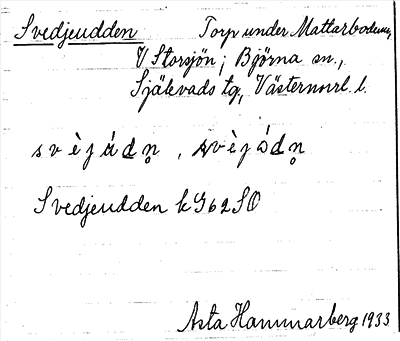 Svedjeudden Torp under Mattarbodum,
V Storsjön; Björna sn.,
Själevads tg, Västernnrl. l.
svèjádn̥, svèjádn̥
Svedjeudden kG62SO
Asta Hammarberg 1933